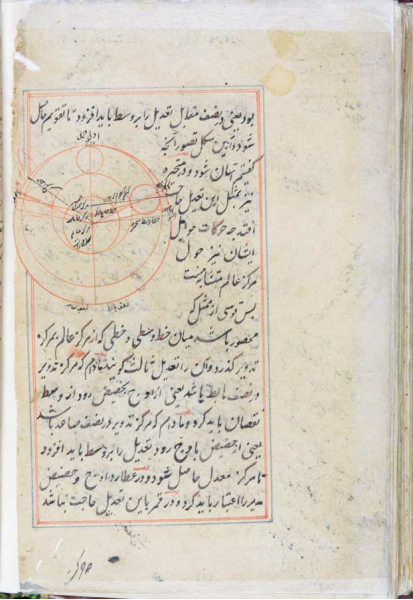 بود یعنی در نصف مقابل تعدیل را بر وسط باید افزود تا تقویم حاصل
شود و ازین شکل تصور آنچه
گفتیم آسان شود و در متحیره
نیز بمثل این تعدیل حاجت
افتد چه حرکات حوامل
ایشان نیز حول
مرکز عالم متشابه نیست
پس قوسی از ممثل که
محصور باشد میان خط وسطی و خطی که از مرکز عالم بمرکز
تدویر گذرد و آن را تعدیل ثالث گویند مادام که مرکز تدویر
در نصف هابط باشد یعنی از اوج بحضیض رود از وسط
نقصان باید کرد و مادام که مرکز تدویر در نصف صاعد باشد
یعنی از حضیض باوج رود تعدیل را بر وسط باید افزود
تا مرکز معدل حاصل شود و در عطارد اوج و حضیض
مدیر را اعتبار باید کرد و در قمر باین تعدیل حاجت نباشد